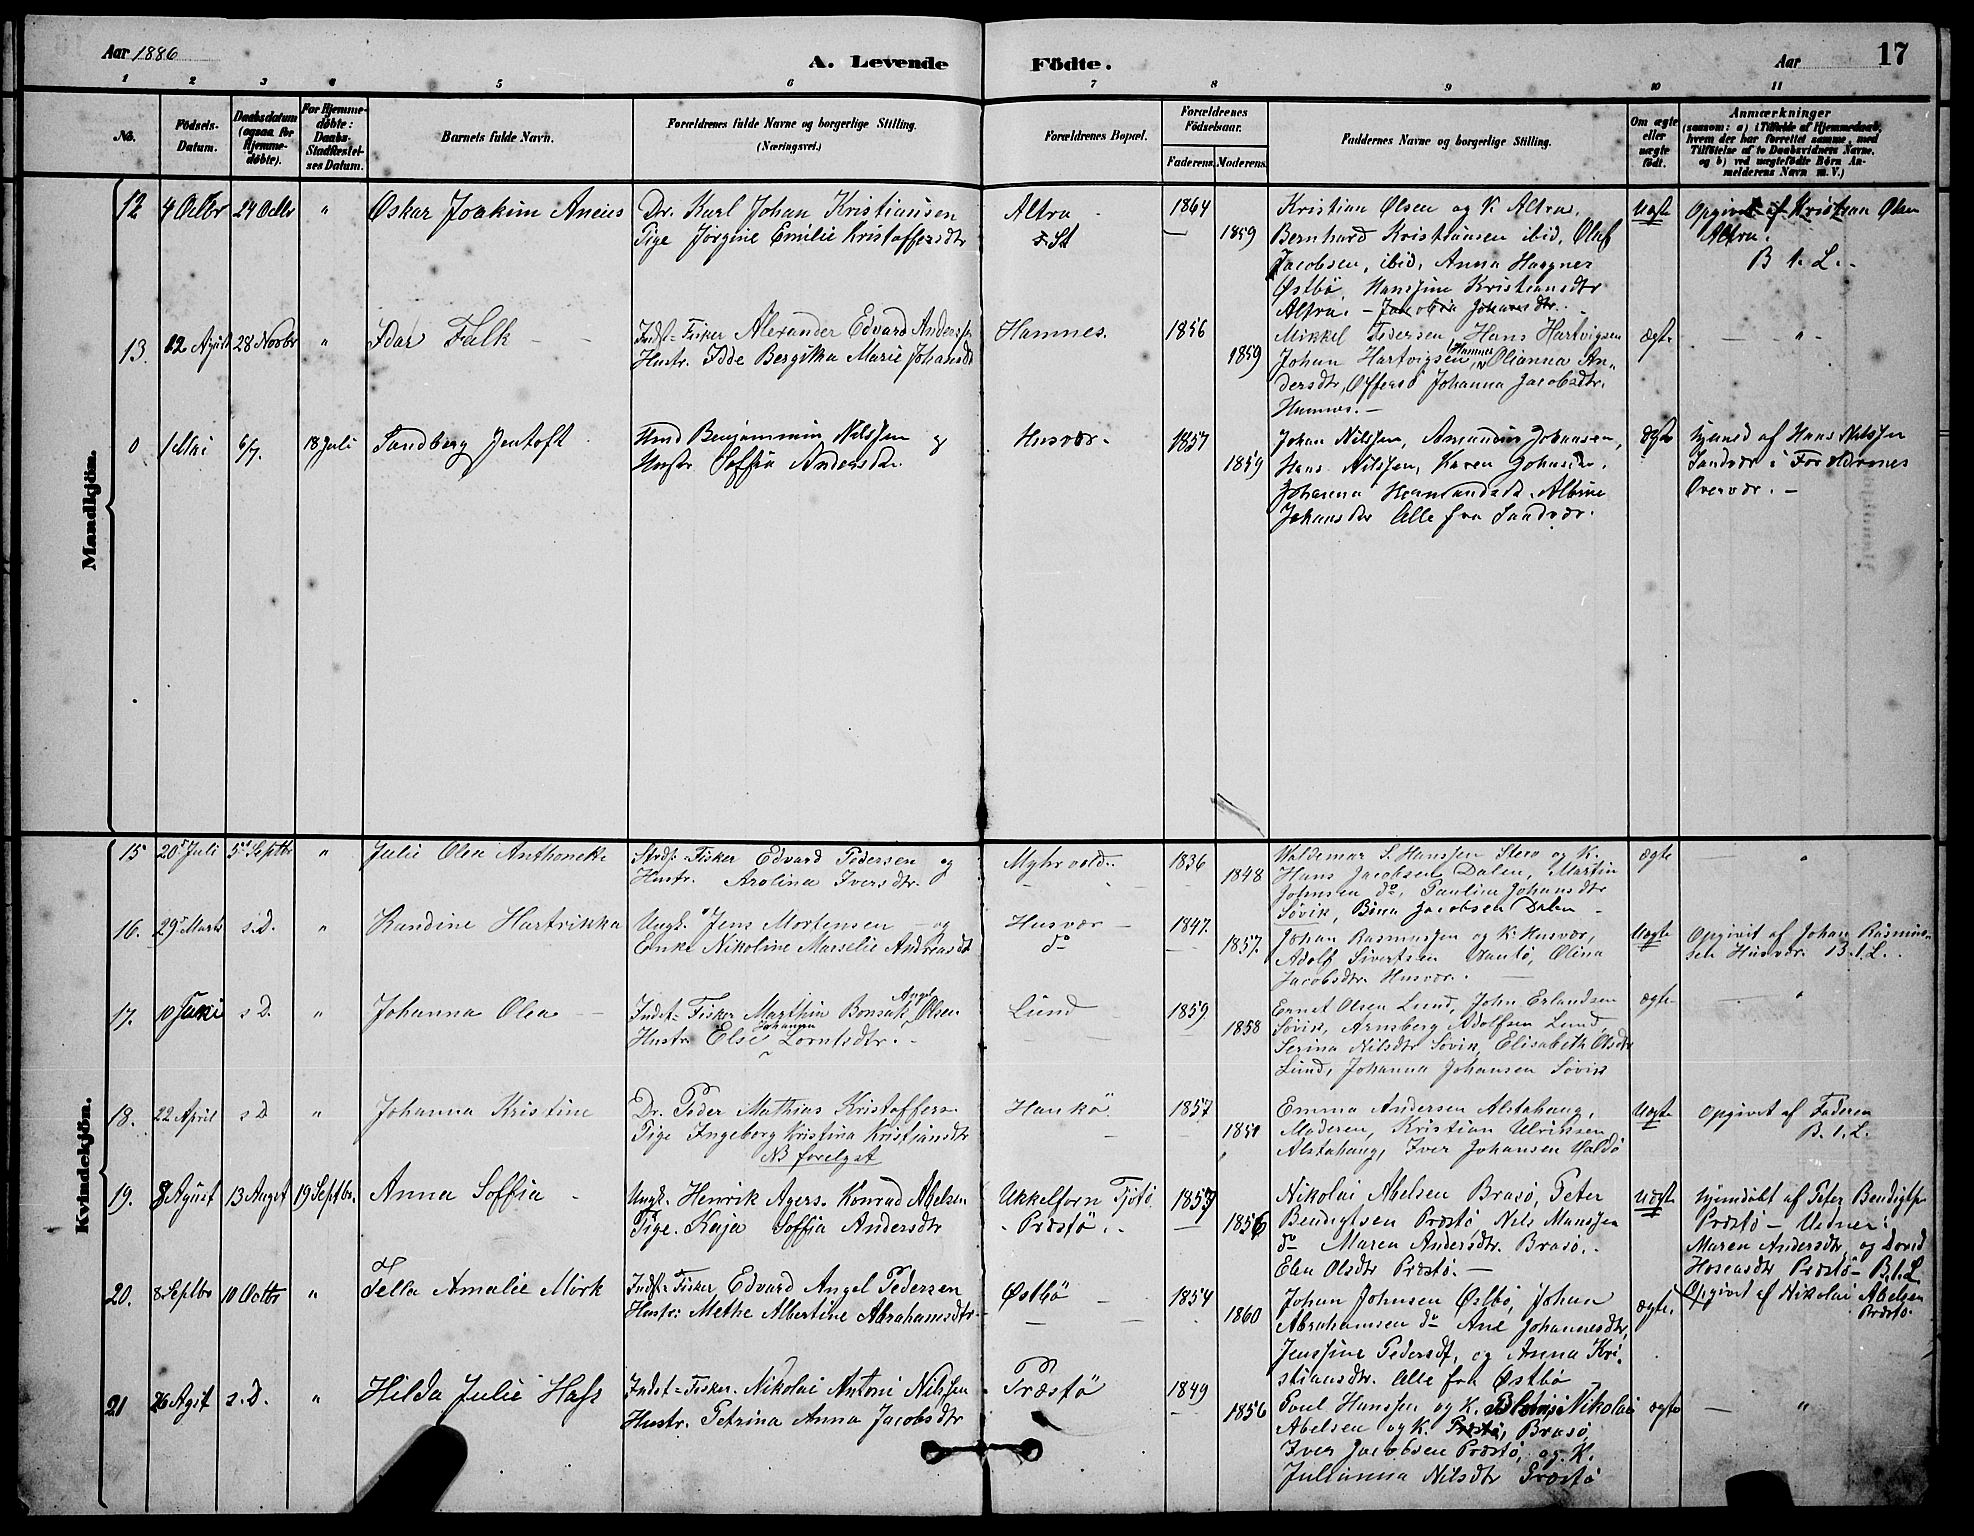 Aar 1886
A. Levende Födte.
Aar
17
1 2 3 4 5 6 7 8 9 10 11
No.
Födsels-Datum.
Daabsdatum (ogsaa for Hjemme-döbte).
For Hjemme-döbte: Daabs-Stadfæstel-ses Datum.
Barnets fulde Navn.
Forældrenes fulde Navne og borgerlige Stilling.
(Næringsvei.)
Forældrenes Bopæl.
Forældrenes Födselsaar.
Faderens. Moderens.
Faddernes Navne og borgerlige Stilling.
Om ægte eller uægte født.
Anmærkninger
(saasom: a) i Tilfælde af Hjemmedaab, hvem der har forrettet samme, med Tilföielse af to Daabsvidners Navne, og b) ved uægtefödte Börn Anmelderens Navn m. V.)
Mandkjön.
12 4 Octbr 24 Octbr " Oskar Joakim Aneus
Dr. Karl Johan Kristiansen
Pige Jørgine Emilie Kristoffersdtr
Altra
1864
1859
Kristian Olsen og K. Altra,
Bernhard Kristiansen ibid, Olaf
Jacobsen, ibid, Anna Hagner
Østbö, Hansine Kristiansdtr
Altra, Jakobia Johansdtr.
Uægte
Opgivet af Kristian Olsen
Altra.
B. 1. L.
13. 12 April 28 Novbr " Idar Falk
Indst-Fisker Alexander Edvard Anderss
Hustr. Idde Bergitha Marie Johansdt
Hamnes.
1856
1859
Mikkel Pedersen, Hans Hartvigsen
Johan Hartvigsen Hamnes, Olianna An-
dersdtr, Offersö Johanna Jacobsdtr.
Hamnes.
ægte
0 1 Mai 6/7. 18 Juli Sandberg Jentoft
Benjammin Nilssen &
Hustr Soffia Andersdtr.
Husvær.
1857
1859
Johan Nilssen, Johansen,
Hans Nilssen, Karen Johansdtr.
Johanna Albine
Johansdtr Alle fra Sandvær.
ægte
Hjemed af Hans Nilssen
Sandvær i Forældrenes
Overvær.
Kvindekjön.
15 20 Juli 5 Septbr " Julie Olea Anthonette
Fisker Edvard Pedersen og
Hustr. Arolina Iversdtr.
Myhrvold
1836
1848
Valdemar S. Hanssen og K.
Hans Jacobsen Dalen, Martin
Johnsen do, Pauline Johansdtr
Søvik, Jacobsen Dalen
ægte
16. 29 Marts s.D. " Randine Hartvikka
Ungk. Jens Mortensen og
Enke Nikoline Marselie Andreasdt
Husvær
do
1847.
1857.
Johan Rasmussen og K. Husvær,
Adolf Sivertsen Olina
Jacobsdtr Husvær.
Uægte
Opgivit af Johan Rasmus-
sen Husvær. B. 1. L.
17. 10 Juni s D. " Johanna Olea
Indst-Fisker Marthin Bonsak Angel Olsen
Hustr Else Johanna Lorntsdtr.
Lund
1859
1858
Ernst Olsen Lund, John Erlandsen
Søvik, Arnsberg Adolfsen Lund,
Serina Nilsdtr Søvik, Elisabeth Olsdtr
Lund, Johanna Johansen Søvik
ægte
18. 22 April s D " Johanna Kristine
Dr. Peder Mathias Kristoffers
Pige Ingeborg Kristina Kristjansdtr
NB forelgst
Hankö
1857
1851
Emma Andersen Alstahaug,
Moderen, Kristian Ulriksen
Alstahaug, Iver Johansen Haldö
Uægte
Opgivet af Faderen
B. 1. L.
19. 8 Agust 13 Augst 19 Septbr. Anna Soffia
Ungk. Henrik Agers. Konrad Abelsen
Pige. Kaja Soffia Andersdtr
Ukkelforn Tjötö
Præstö.
1857
1856
Nikolai Abelsen Brasö, Peter
Bendigtsen Præstö Nils Manssen
do Maren Andersdtr. Brasö.
Elen Olsdtr Præstö.
uægte
Hjemdöbt af Peter Bendigts
Præstö - Vidner:
Maren Andersdtr og Dorid
Hoseasdtr Præstö B.1.L
Opgivet af Nikolai Abelsen
Præstö.
20. 8 Septbr 10 Octbr " Pella Amalie Mörk
Indst-Fisker Edvard Angel Pedersen
Hustr: Methe Albertine Abrahamsdtr
Østbö
1854
1860
Johan Johnsen Østbö, Johan
Abrahamsen do Ane Johannesdtr,
Jenssine Pedersdt, og Anna Kri-
stiansdtr. Alle fra Østbö
ægte.
21 26 Agst s.D. " Hilda Julie Hass
Indst-Fisker. Nikolai Antoni Nilssen
Hustr. Petrina Anna Jacobsdtr
Præstö
1849
1856
Poul Hanssen og K. Nikolai
Abelsen og K. Brasö,
Iver Jacobsen Præstö, og K.
Julianna Nilsdtr Præstö
ægte